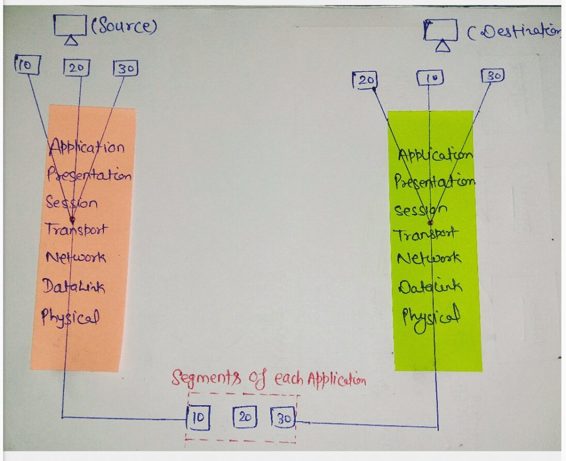 (Source)
(Destination
10 20 30
20 10 30
Application
Presentation
Session
Transport
Network
DataLink
Physical
Application
Presentation
Session
Transport
Network
DataLink
Physical
Segments of each Application
10 20 30